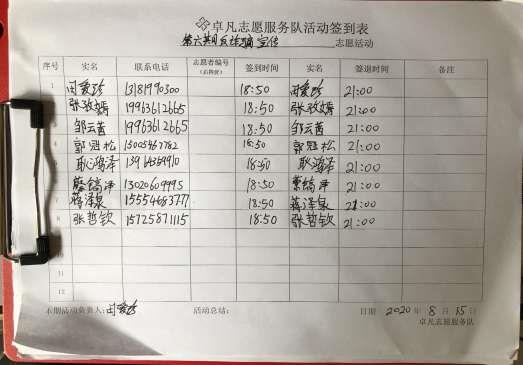 卓凡志愿服务队活动签到表
第六期反诈骗宣传 志愿活动
序号 实名 联系电话 志愿者编号 签到时间 实名 签退时间 备注
1 闵爱珍 13181990300 18:50 闵爱珍 21:00
张玫嫣 19963612665 18:50 张玫嫣 21:00
邹云茜 19963612665 18:50 邹云茜 21:00
4 郭冠松 15005467782 18:50 郭冠松 21:00
耿鸿泽 18:50 耿鸿泽 21:00
13020609995 18:50 21:00
7 蒋泽泉 15554683777 18:50 蒋泽泉 21:00
8 张哲钦 15725871115 18:50 张哲钦 21:00
10
11
12
本期活动负责人:闵爱珍 活动总结: 日期 2020 年 8 月 15 日
卓凡志愿服务队